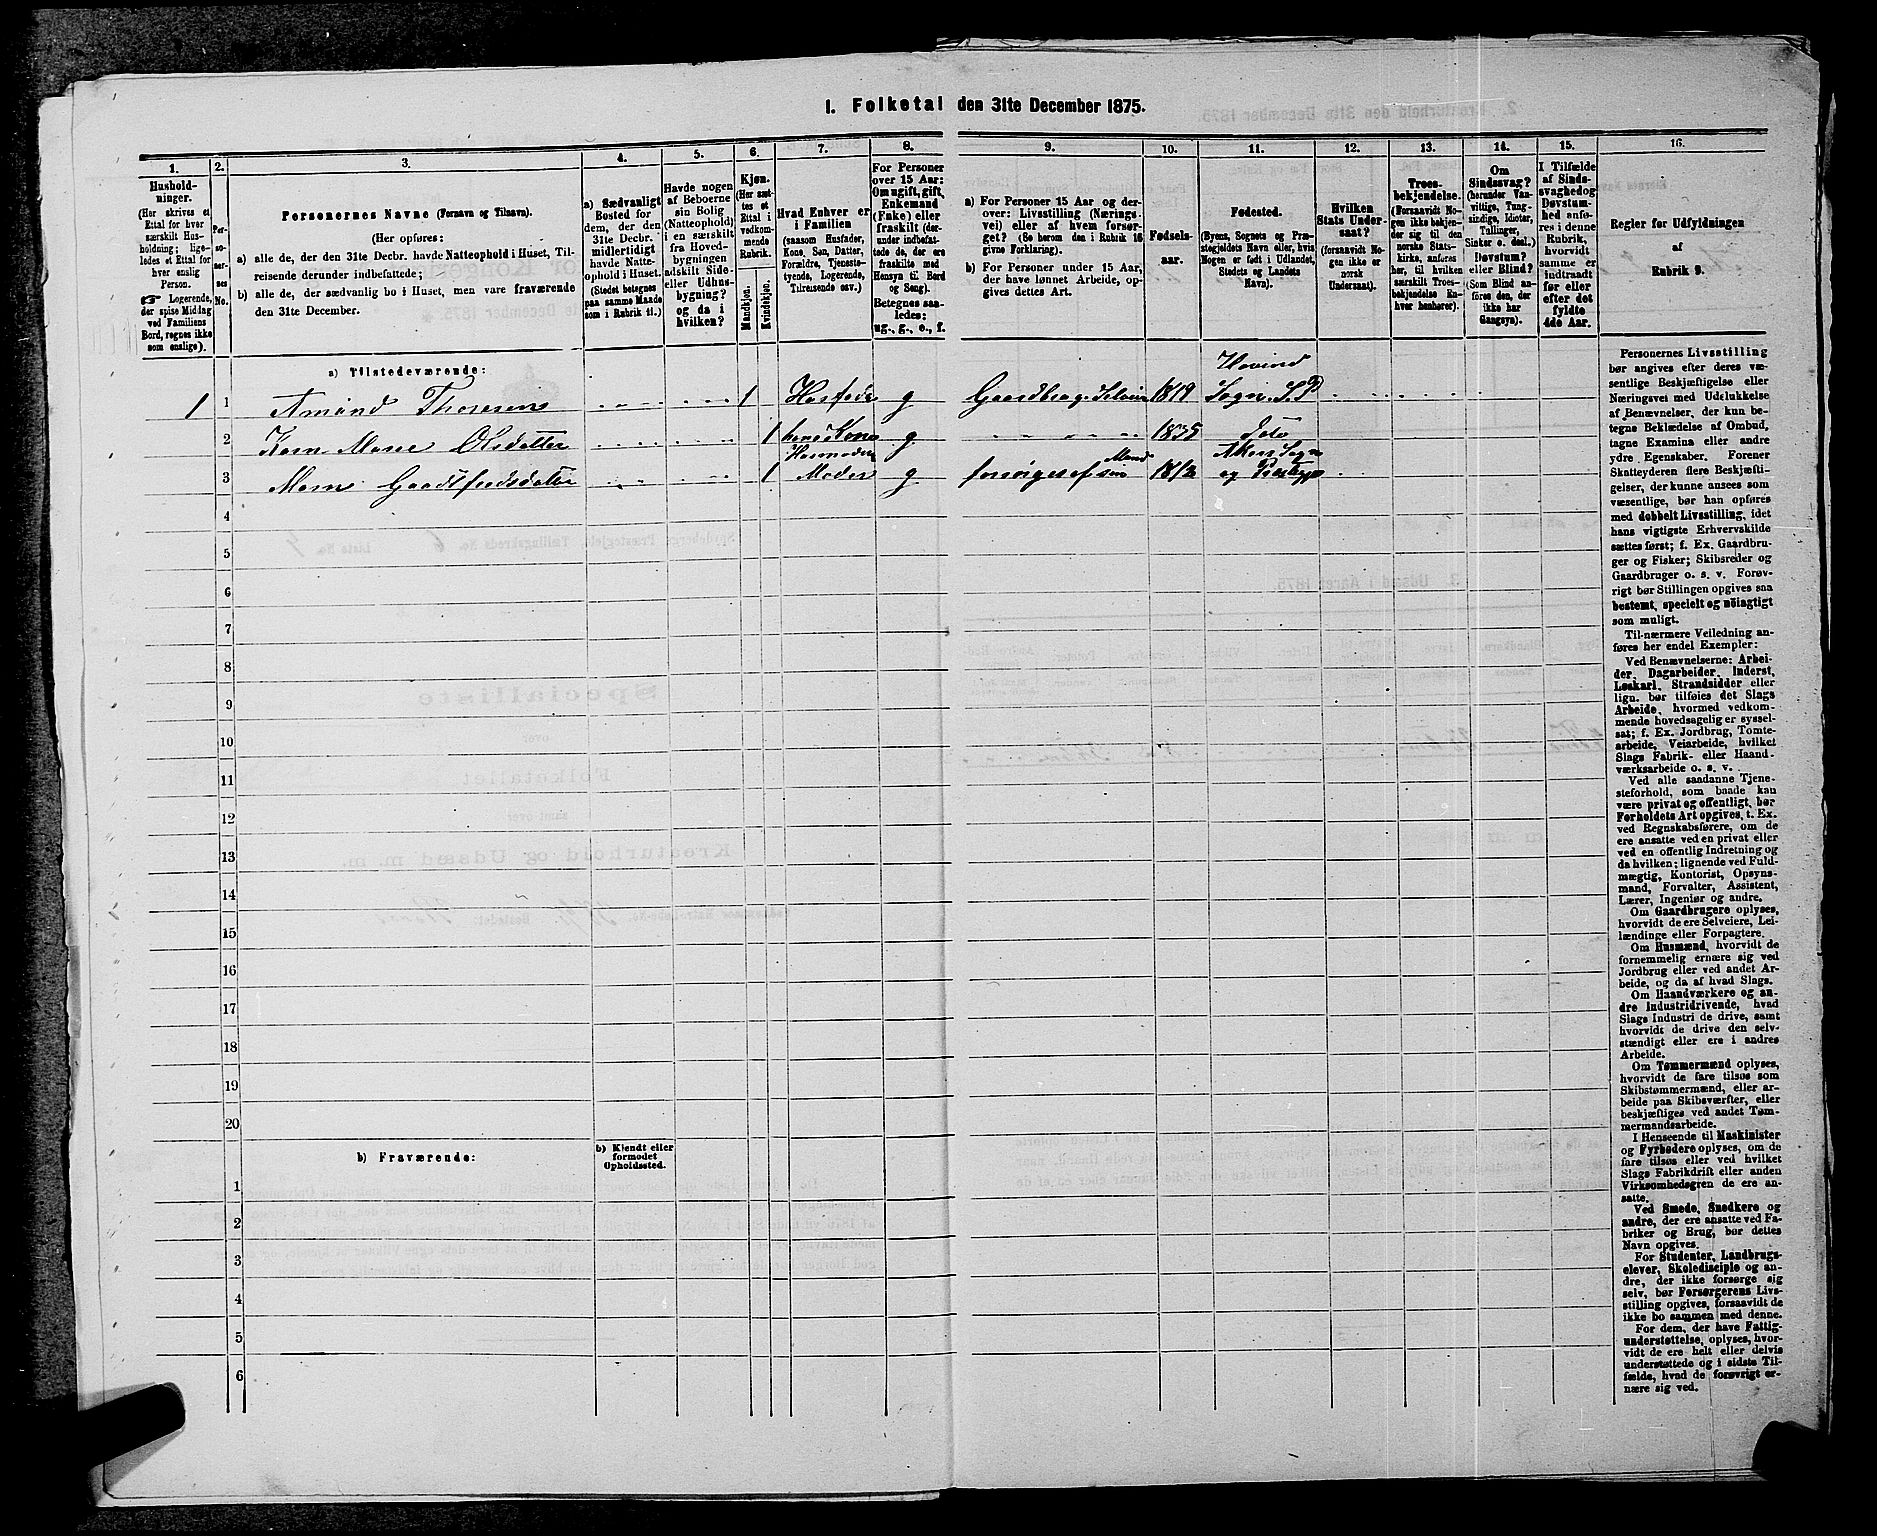 1. Folketal den 31te December 1875.
1.
2.
3.
4.
5.
6.
7.
8.
9.
10.
11.
12.
13.
14.
15.
16.
Hushold-
ninger.
(Her skrives et
Ettal for hver
særskilt Hus-
holdning; lige-
ledes et Ettal for
hver enslig
Person.
☞ Logerende,
der spise Middag
ved Familiens
Bord, regnes ikke
som enslige).
Per-
so-
ner-
nes
No.
Personernes Navne (Fornavn og Tilnavn).
(Her opføres:
a) alle de, der den 31te Decbr. havde Natteophold i Huset, Til-
reisende derunder indbefattede;
b) alle de, der sædvanlig bo i Huset, men vare fraværende
den 31te December.
a) Sædvanligt
Bosted for
dem, der den
31te Decbr.
midlertidigt
havde Natte-
ophold i Huset.
(Stedet betegnes
paa samme Maade
som i Rubrik 11.)
Havde nogen
af Beboerne
sin Bolig
(Natteophold)
i en særskilt
fra Hoved-
bygningen
adskilt Side-
eller Udhus-
bygning?
og da i
hvilken?
Kjøn.
(Her sæt-
tes et
Ettal i
vedkom-
mende
Rubrik.
Mandkjøn.
Kvindekjøn.
Hvad Enhver er
i Familien
(saasom Husfader,
Kone, Søn, Datter,
Forældre, Tjeneste-
tyende, Logerende,
Tilreisende osv.)
For Personer
over 15 Aar:
Om ugift, gift,
Enkemand
(Enke) eller
fraskilt (der-
under indbefat-
tede de, der ere
fraskilte med
Hensyn til Bord
og Seng).
Betegnes saa-
ledes:
ug., g., e., f.
a) For Personer 15 Aar og der-
over: Livsstilling (Nærings-
vei) eller af hvem forsør-
get? (Se herom den i Rubrik 16
givne Forklaring).
b) For Personer under 15 Aar,
der have lønnet Arbeide, op-
gives dettes Art.
Fødsels-
aar.
Fødested.
(Byens, Sognets og Præ-
stegjeldets Navn eller, hvis
Nogen er født i Udlandet,
Stedets og Landets
Navn).
Hvilken
Stats Under-
saat?
(forsaavidt No-
gen ikke er
norsk
Undersaat).
Troes-
bekjendelse.
(Forsaavidt No-
gen ikke bekjen-
der sig til den
norske Stats-
kirke, anføres
her, til hvilken
særskilt Troes-
bekjendelse En-
hver henhører).
Om
Sindssvag?
(herunder Van-
vittige, Tung-
sindige, Idioter,
Tullinger,
Sinker o. desl.)
Døvstum?
eller Blind?
(Som Blind an-
føres den, der
ikke har
Gangsyn).
I Tilfælde
af Sinds-
svaghed og
Døvstum-
hed anfø-
res i denne
Rubrik,
hvorvidt
samme er
indtraadt
før eller
efter det
fyldte
4de Aar.
Regler for Udfyldningen
af
Rubrik 9.
a) Tilstedeværende:
1 1 Amund Thoresen 1 Husfader g Gaardbrug. Selveier 1819 Hovind Sogn. S. P.
2 Karn Marie Olsdatter 1 hans Kone g 1835 Dito
3 Maren 1 Husmoders Moder g forsørges af sin Mand og Præstegj
4
5
6
7
8
9
10
11
12
13
14
15
16
17
18
19
20
b) Fraværende:
b) Kjendt eller
formodet
Opholdssted.
1
2
3
4
5
6
Personernes Livsstilling
bør angives efter deres væ-
sentlige Beskjæftigelse eller
Næringsvei med Udelukkelse
af Benævnelser, der kun be-
tegne Beklædelse af Ombud,
tagne Examina eller andre
ydre Egenskaber. Forener
Skatteyderen flere Beskjæfti-
gelser, der kunne ansees som
væsentlige, bør han opføres
med dobbelt Livsstilling, idet
hans vigtigste Erhvervskilde
sættes først; f. Ex. Gaardbru-
ger og Fisker; Skibsreder og
Gaardbruger o. s. v. Forøv-
rigt bør Stillingen opgives saa
bestemt, specielt og nöiagtigt
som muligt.
Til nærmere Veiledning an-
føres her endel Exempler:
Ved Benævnelserne: Arbei-
der, Dagarbeider, Inderst,
Løskarl, Strandsidder eller
lign. bør tilføies det Slags
Arbeide, hvormed vedkom-
mende hovedsagelig er syssel-
sat; f. Ex. Jordbrug, Tomte-
arbeide, Veiarbeide, hvilket
Slags Fabrik- eller Haand-
værksarbeide o. s. v.
Ved alle saadanne Tjene-
steforhold, som baade kan
være privat og offentligt, bør
Forholdets Art opgives, t. Ex.
ved Regnskabsførere, om de
ere ansatte ved en privat eller
ved en offentlig Indretning og
da hvilken; lignende ved Fuld-
mægtig, Kontorist, Opsyns-
mand, Forvalter, Assistent,
Lærer, Ingeniør og andre.
Om Gaardbrugere oplyses,
hvorvidt de ere Selveiere, Lei-
lændinge eller Forpagtere.
Om Husmænd, hvorvidt de
fornemmelig ernære sig ved
Jordbrug eller ved andet Ar-
beide, og da af hvad Slags.
Om Haandværkere og an-
dre Industridrivende, hvad
Slags Industri de drive, samt
hvorvidt de drive den selv-
stændigt eller ere i andres
Arbeide.
Om Tømmermænd oplyses,
hvorvidt de fare tilsøs som
Skibstømmermænd, eller ar-
beide paa Skibsværfter, eller
beskjæftiges ved andet Tøm-
mermandsarbeide.
I Henseende til Maskinister
og Fyrbødere oplyses, om de
fare tilsøs eller ved hvilket
Slags Fabrikdrift eller anden
Virksomhedsgren de ere an-
satte.
Ved Smede, Snedkere og
andre, der ere ansatte ved Fa-
briker og Brug, bør dettes
Navn opgives.
For Studenter, Landbrugs-
elever, Skoledisciple og an-
dre, der ikke forsørge sig
selv, bør Forsørgerens Livs-
stilling opgives, forsaavidt de
ikke bo sammen med denne.
For dem, der have Fattig-
understøttelse, oplyses, hvor-
vidt de ere helt eller delvis
understøttede og i sidste Til-
fælde, hvad de forøvrigt er-
nære sig ved.